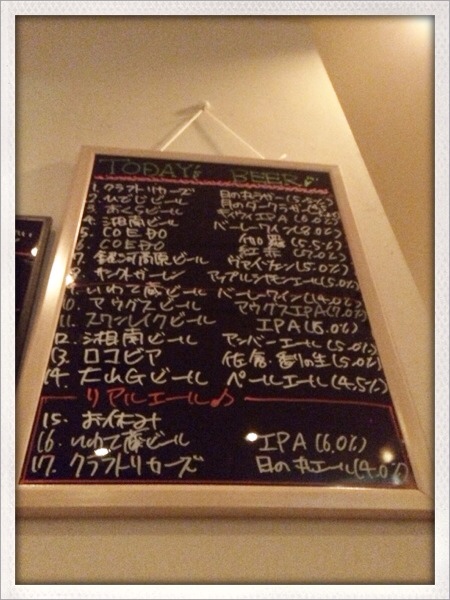 TODAY'S BEER♪
1. クラフトリカーズ 目の丸ラガー(5.5%)
2. ひでじビール 目のダークラガー
3. おくらビール キウイIPA(6.0%)
4. 湘南ビール バーレーワイン(8.0%)
5. COEDO 伽羅(5.5%)
6. COEDO 紅赤(7.0%)
7. 銀河高原ビール ヴァイツェン(5.0%)
8. サンクトガーレン アップルシナモンエール(5.0%)
9. いわて蔵ビール バーレーワイン(14.0%)
10. アウグスビール アウグスIPA(7.0%)
11. スワンレイクビール IPA(6.0%)
12. 湘南ビール アンバーエール(5.0%)
13. ロコビア 佐倉・香りの生(5.0%)
14. 大山Gビール ペールエール(4.5%)
リアルエール♪
15. お休み
16. いわて蔵ビール IPA(6.0%)
17. クラフトリカーズ 目の丸エール(4.0%)